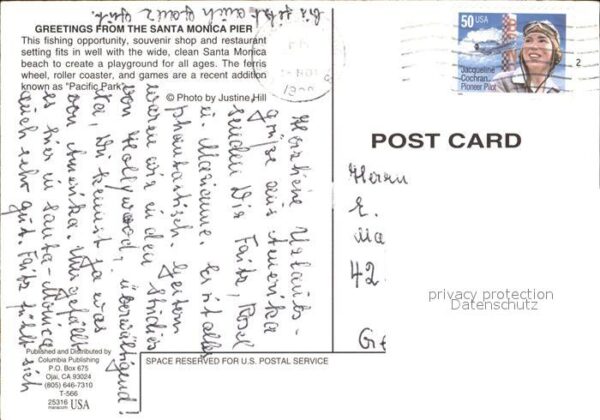 GREETINGS FROM THE SANTA MONICA PIER
This fishing opportunity, souvenir shop and restaurant
setting fits in well with the wide, clean Santa Monica
beach to create a playground for all ages. The ferris
wheel, roller coaster, and games are a recent addition
known as "Pacific Park".
© Photo by Justine Hill
50 USA
Jacqueline
Cochran
Pioneer Pilot
2
POST CARD
Herrn
E.
Ma
42
privacy protection
Datenschutz
Herzliche Urlaubs-
grüße aus Amerika
senden Dir Fritz, Rosel
u. Marianne. Es ist alles
phantastisch. Gestern
waren wir in den Studios
von Hollywood, überwältigend!
Du kennst ja was
von Amerika. Mir gefällt
es hier in Santa-Monica
auch sehr gut. Fritz fühlt sich
bis jetzt auch ganz gut.
Published and Distributed by
Columbia Publishing
P.O. Box 675
Ojai, CA 93024
(805) 646-7310
T-566
25316
maracom USA
SPACE RESERVED FOR U.S. POSTAL SERVICE